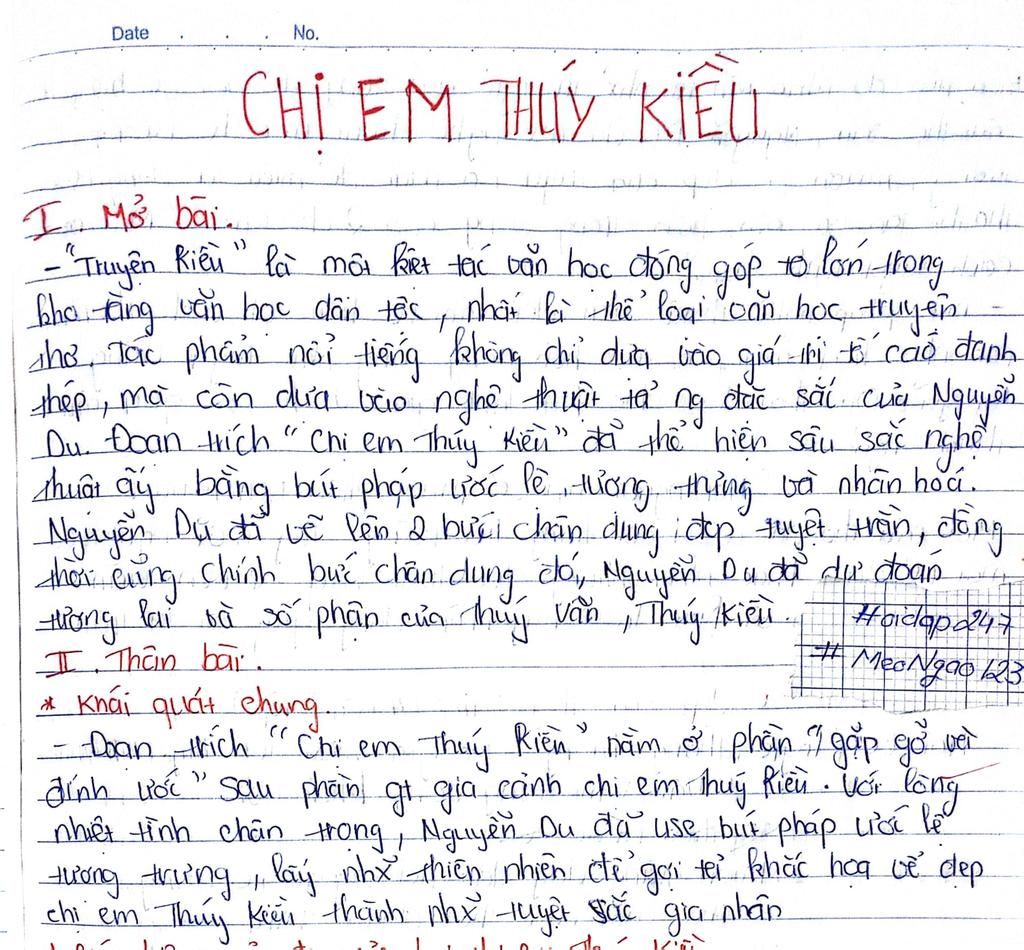 Date . . . No.
CHỊ EM THÚY KIỀU
I. Mở bài.
- "Truyện Kiều" là một kiệt tác văn học đóng góp to lớn trong
kho tàng văn học dân tộc, nhất là thể loại văn học truyện
thơ. Tác phẩm nổi tiếng không chỉ dựa vào giá trị tố cáo đanh
thép, mà còn dựa vào nghệ thuật tả ng đặc sắc của Nguyễn
Du. Đoạn trích "Chị em Thuý Kiều" đã thể hiện sâu sắc nghệ
thuật ấy bằng bút pháp ước lệ, tượng trưng và nhân hoá.
Nguyễn Du đã vẽ lên 2 bức chân dung đẹp tuyệt trần, đồng
thời cũng chính bức chân dung đó, Nguyễn Du đã dự đoán
tương lai và số phận của Thuý Vân, Thuý Kiều.
#aidap247
# MeoNgao123
II. Thân bài.
* Khái quát chung.
- Đoạn trích "Chị em Thuý Kiều" nằm ở phần "gặp gỡ và
đính ước" sau phần gt gia cảnh chị em Thuý Kiều. Với lòng
nhiệt tình chân trọng, Nguyễn Du đã use bút pháp ước lệ
tượng trưng, lấy nhx thiên nhiên để gợi tả khắc hoạ vẻ đẹp
chị em Thuý Kiều thành nhx tuyệt sắc gia nhân